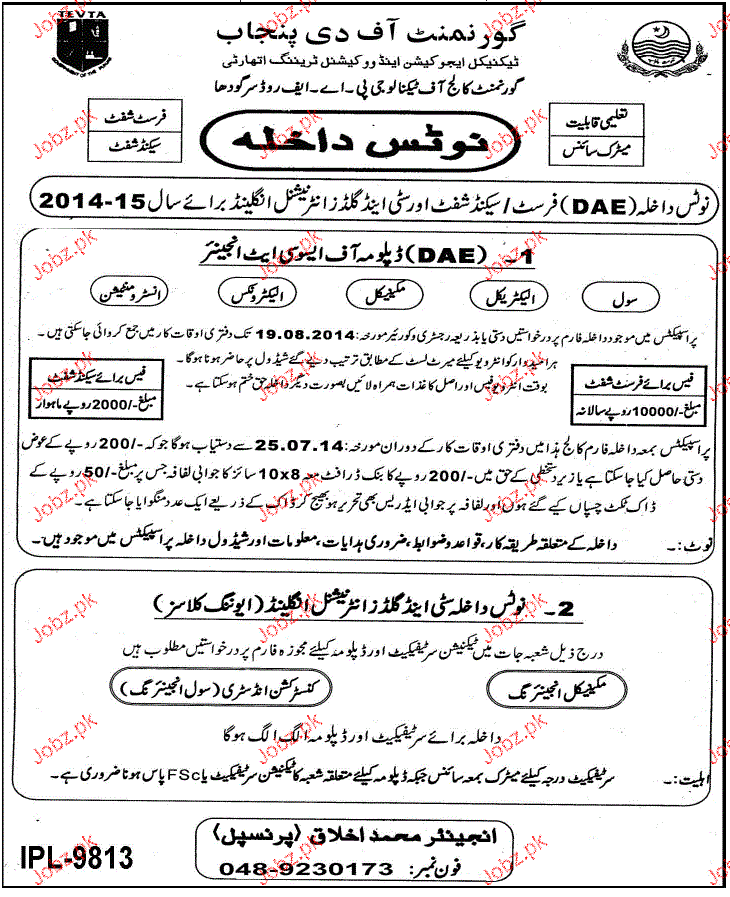 TEVTA
GOVERNMENT OF THE PUNJAB
گورنمنٹ آف دی پنجاب
ٹیکنیکل ایجوکیشن اینڈ ووکیشنل ٹریننگ اتھارٹی
گورنمنٹ کالج آف ٹیکنالوجی پی۔اے۔ایف روڈ سرگودھا
تعلیمی قابلیت
میٹرک سائنس
نوٹس داخلہ
فرسٹ شفٹ
سیکنڈ شفٹ
نوٹس داخلہ (DAE) فرسٹ/سیکنڈ شفٹ اور سٹی اینڈ گلڈز انٹرنیشنل انگلینڈ برائے سال 2014-15
1۔ (DAE) ڈپلومہ آف ایسوسی ایٹ انجینئر
سول
الیکٹریکل
مکینیکل
الیکٹرونکس
انسٹرومنٹیشن
پراسپیکٹس میں موجود داخلہ فارم پر درخواستیں دستی یا بذریعہ رجسٹری و کورئیر مورخہ: 19.08.2014 تک دفتری اوقات کار میں جمع کروائی جاسکتی ہیں۔
ہر امیدوار کو انٹرویو کیلئے میرٹ لسٹ کے مطابق ترتیب دیے گئے شیڈول پر حاضر ہونا ہوگا۔
بوقت انٹرویو فیس اور اصل کاغذات ہمراہ لائیں بصورت دیگر داخلہ حق ختم ہوسکتا ہے۔
فیس برائے فرسٹ شفٹ
مبلغ -/10000 روپے سالانہ
فیس برائے سیکنڈ شفٹ
مبلغ -/2000 روپے ماہوار
پراسپیکٹس بمعہ داخلہ فارم کالج ہذا میں دفتری اوقات کار کے دوران مورخہ: 25.07.14 سے دستیاب ہوگا جو کہ -/200 روپے کے عوض
دستی حاصل کیا جاسکتا ہے یا زیر دستخطی کے حق میں -/200 روپے کا بنک ڈرافٹ معہ 10x8 سائز کا جوابی لفافہ جس پر مبلغ -/50 روپے کے
ڈاک ٹکٹ چسپاں کیے گئے ہوں اور لفافہ پر جوابی ایڈریس بھی تحریر ہو بھیج کر ڈاک کے ذریعے ایک عدد منگوایا جاسکتا ہے۔
نوٹ:۔ داخلہ کے متعلقہ طریقہ کار، قواعد و ضوابط، ضروری ہدایات، معلومات اور شیڈول داخلہ پراسپیکٹس میں موجود ہیں۔
2۔ نوٹس داخلہ سٹی اینڈ گلڈز انٹرنیشنل انگلینڈ (ایوننگ کلاسز)
درج ذیل شعبہ جات میں ٹیکنیشن سرٹیفکیٹ اور ڈپلومہ کیلئے مجوزہ فارم پر درخواستیں مطلوب ہیں
مکینیکل انجینئرنگ
کنسٹرکشن انڈسٹری (سول انجینئرنگ)
داخلہ برائے سرٹیفکیٹ اور ڈپلومہ الگ الگ ہوگا
اہلیت:۔ سرٹیفکیٹ درجہ کیلئے میٹرک بمعہ سائنس جبکہ ڈپلومہ کیلئے متعلقہ شعبہ کا ٹیکنیشن سرٹیفکیٹ یا FSc پاس ہونا ضروری ہے۔
انجینئر محمد اخلاق (پرنسپل)
فون نمبر: 048-9230173
IPL-9813
Jobz.pk